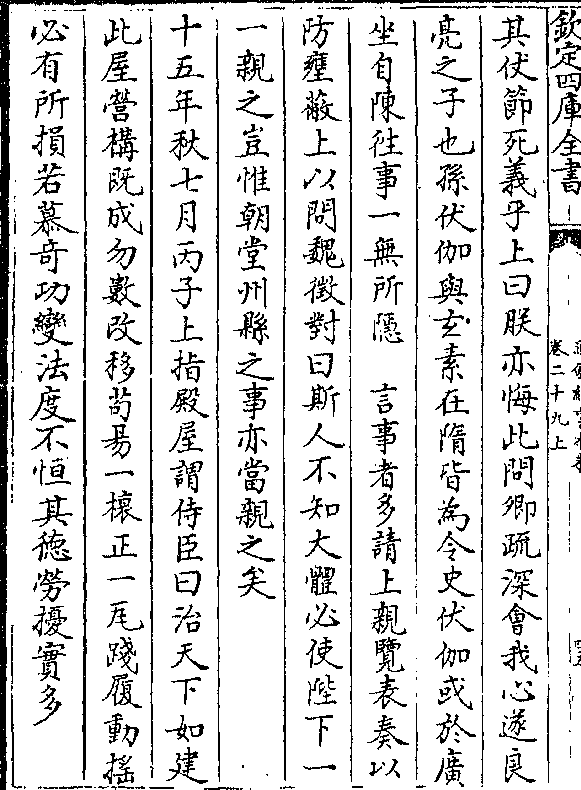 欽定四庫全書
卷二十九上
其伏節死義乎上曰朕亦悔此問卿疏深會我心遂良
亮之子也孫伏伽與玄素在隋皆為令史伏伽或於廣
坐自陳徃事一無所隱　言事者多請上親覽表奏以
防壅蔽上以問魏徴對曰斯人不知大體必使陛下一
一親之豈惟朝堂州縣之事亦當親之矣
十五年秋七月丙子上指殿屋謂侍臣曰治天下如建
此屋營構既成勿數改移茍易一榱正一瓦踐履動揺
必有所損若慕竒功變法度不恒其徳勞擾實多